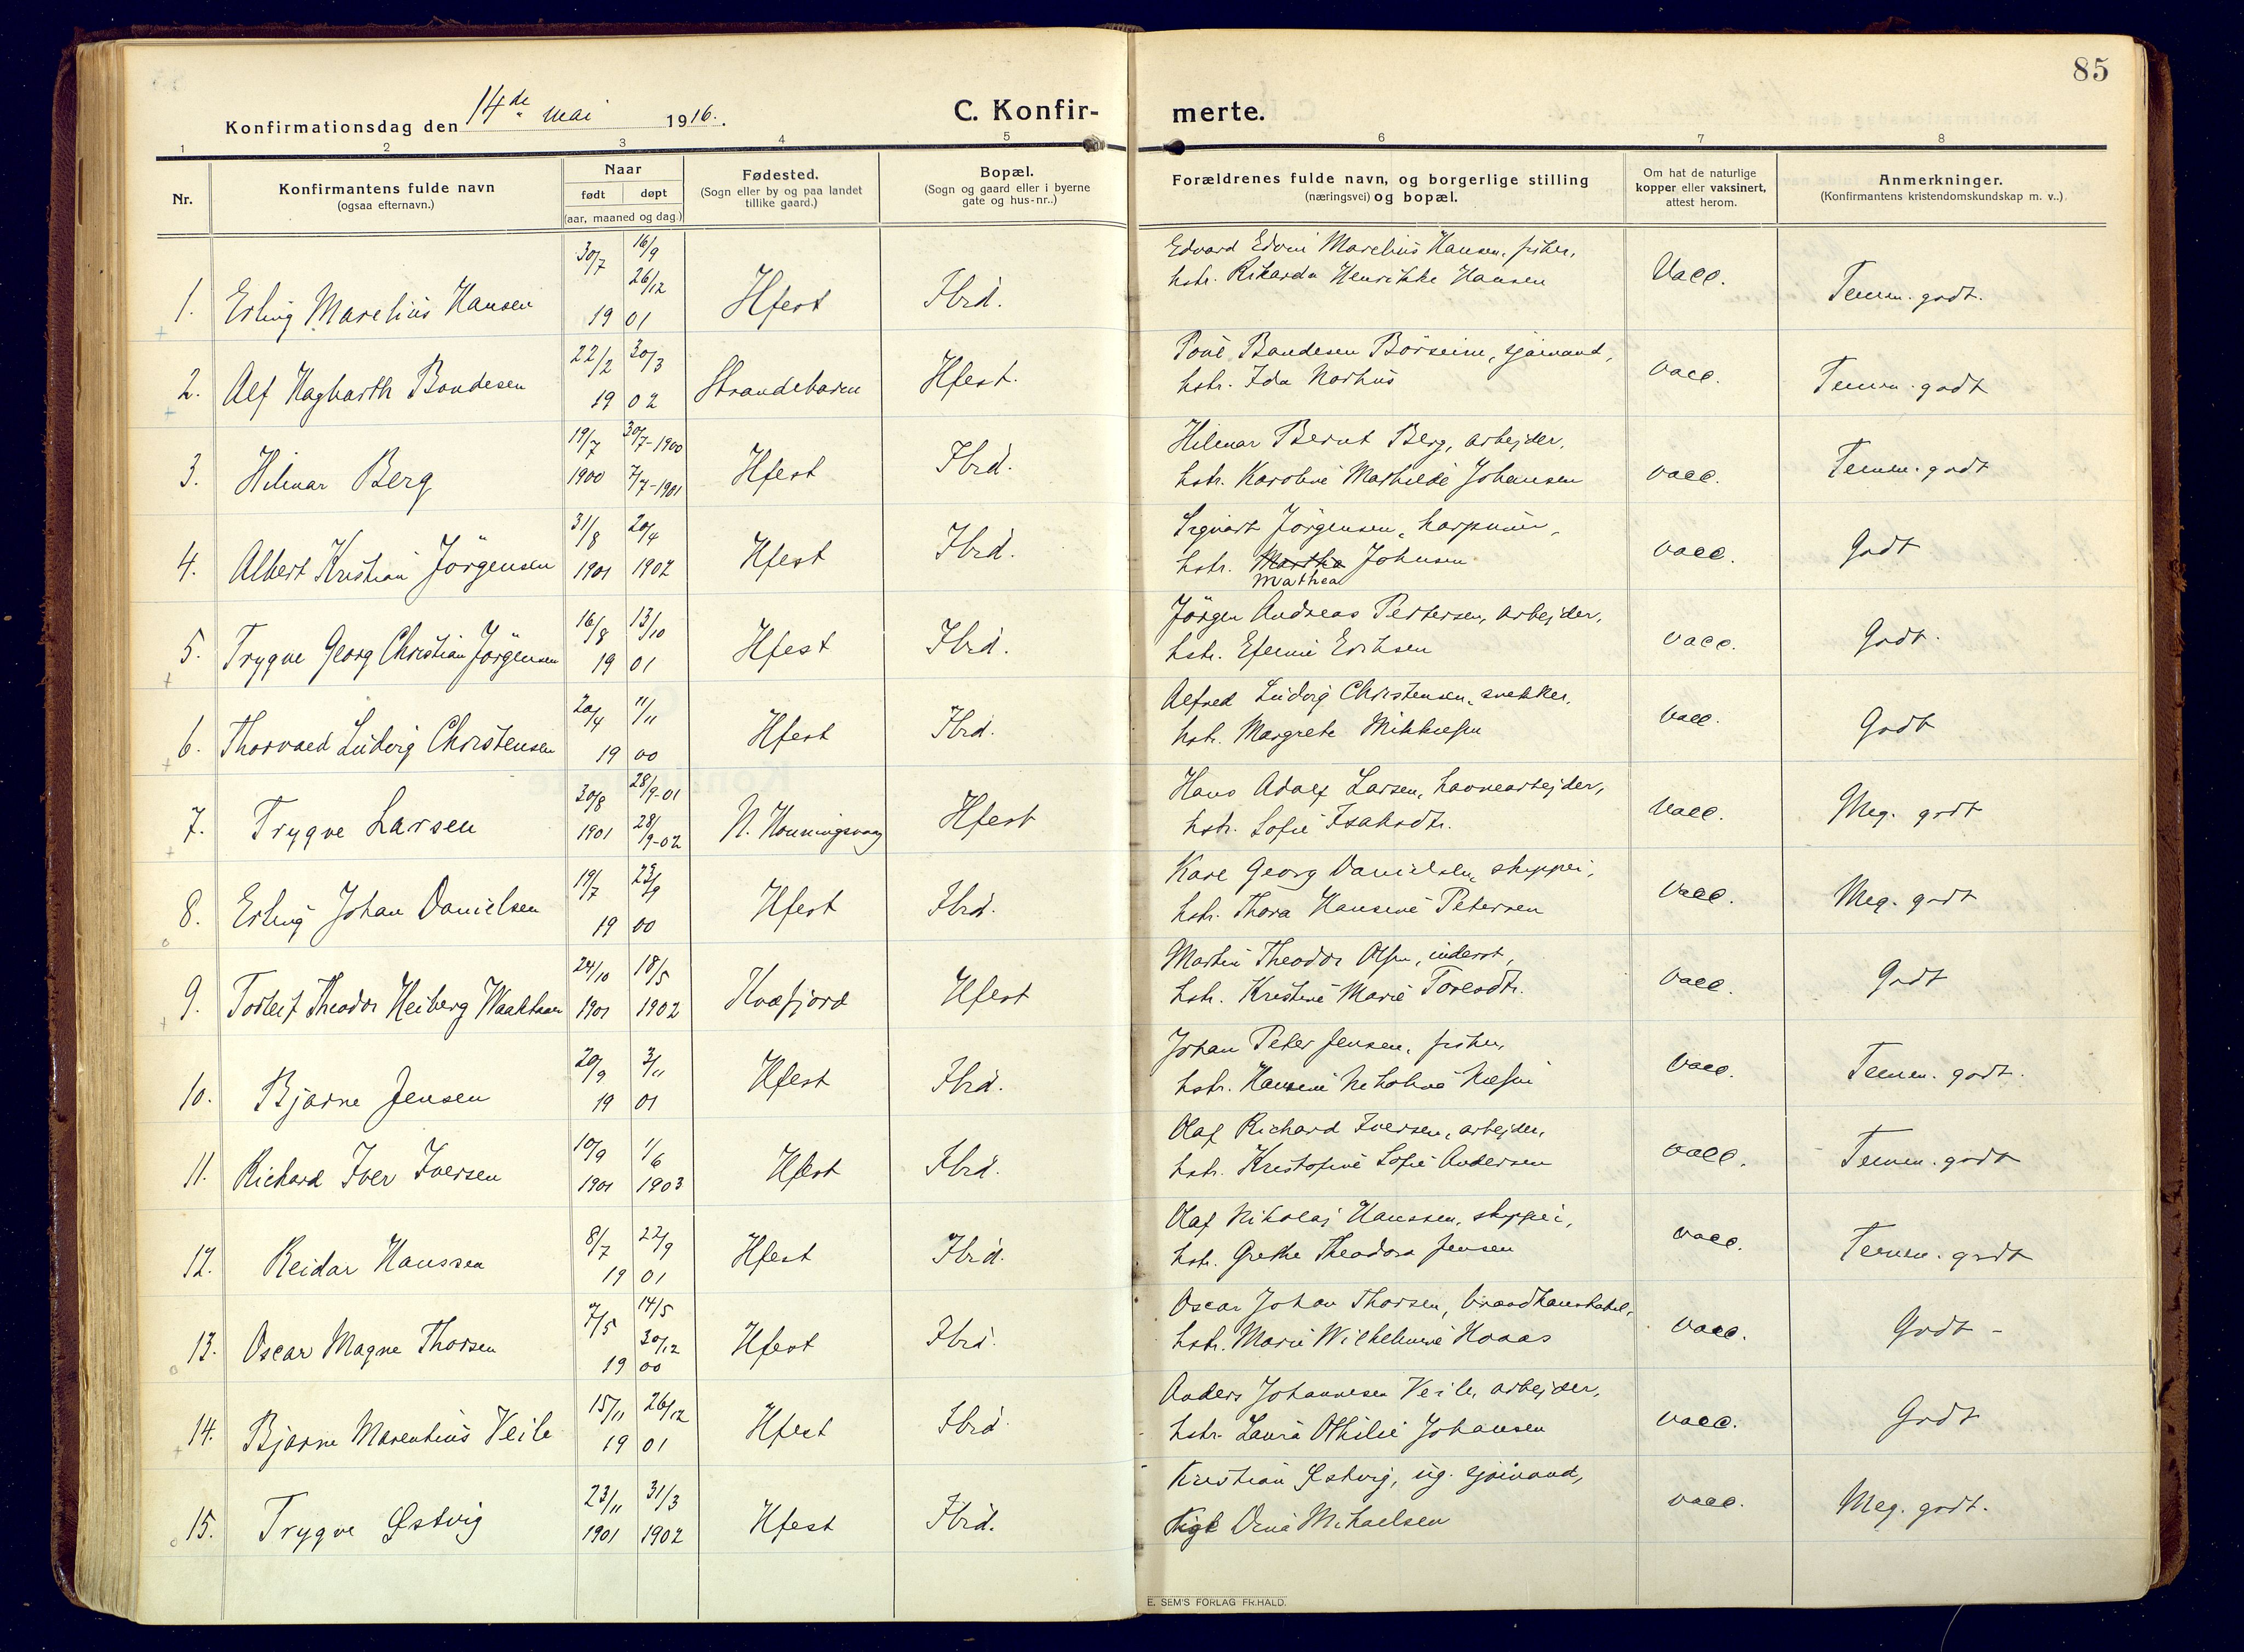 85
Konfirmationsdag den 14de mai 1916.
C. Konfir-
merte.
1 2 3 4 5 6 7 8
Nr.
Konfirmantens fulde navn
(ogsaa efternavn.)
Naar
født døpt
(aar, maaned og dag.)
Fødested.
(Sogn eller by og paa landet
tillike gaard.)
Bopæl.
(Sogn og gaard eller i byerne
gate og hus-nr..)
Forældrenes fulde navn, og borgerlige stilling
(næringsvei) og bopæl.
Om hat de naturlige
kopper eller vaksinert,
attest herom.
Anmerkninger.
(Konfirmantens kristendomskundskap m. v..)
1. Erling Marelius Hansen 30/7 16/9 26/12 1901 Hfest Ibid. Vacc. Temm. godt.
Edvard Edvin Marelius Hansen, fisker,
hstr. Rikarda Henrikke Hansen
2. Alf Hagbarth Bondesen 22/2 30/3 1902 Strandebarm Hfest. Vacc. Temm. godt
Bondesen Børseim, sjømand,
hstr. Ida Norhus
3. Hilmar Berg 19/7 1900 30/7-1900 7/7-1901 Hfest Ibid. Vacc. Temm. godt
Hilmar Bernt Berg, arbejder,
hstr. Karoline Mathilde Johansen
4. Albert Kristian Jörgensen 31/8 1901 20/4 1902 Hfest Ibid. Vacc. Godt
Sigvart Jörgensen, harpuner,
hstr. Martha Johnsen
Mathea
5. Trygve Georg Christian Jörgensen 16/8 13/10 1901 Hfest Ibid. Vacc. Godt.
Jörgen Andreas Pettersen, arbejder,
hstr. Efemie Eriksen
6. Thorvald Ludvig Christensen 20/4 11/11 1900 Hfest Ibid. Vacc. Godt
Alfred Ludvig Christensen, snekker,
hstr. Margrete Mikkelsen
7. Trygve Larsen 30/8 1901 28/9-01 28/9-02 N. Honningsvaag Hfest Vacc. Meg. godt
Hans Adolf Larsen, havnearbejder,
hstr. Sofie Isaksdtr.
8. Erling Johan Danielsen 19/7 23/9 1900 Hfest Ibid. Vacc. Meg. godt
Karl Georg Danielsen, skipper,
hstr. Thora Hansine Petersen
9. Torleif Theodor Heiberg Waaktaar 24/10 1901 18/5 1902 Kvæfjord Hfest Vacc. Godt
Martin Theodor Olsen, inderst,
hstr. Kristine Marie Toresdtr.
10. Bjarne Jensen 20/9 3/11 1901 Hfest Ibid. Vacc. Temm. godt.
Johan Peter Jensen, fisker,
hstr. Hansine Nikoline
11. Richard Iver Iversen 10/9 1901 1/6 1903 Hfest Ibid. Vacc. Temm. godt
Olaf Richard Iversen, arbejder,
hstr. Kristofine Sofie Andersen
12. Reidar Hanssen 8/7 22/9 1901 Hfest Ibid. Vacc. Temm. godt
Olaf Nikolaj Hanssen, skipper,
hstr. Grethe Theodora Jensen
13. Oscar Magne Thorsen 7/5 14/5 30/12 1900 Hfest Ibid. Vacc. Godt -
Oscar Johan Thorsen, brandkonstabel,
hstr. Marie Wilhelmine Haaas
14. Bjarne Marentius Veile 15/11 26/12 1901 Hfest Ibid Vacc. Godt
Anders Johannesen Veile, arbejder,
hstr. Laura Othilie Johansen
15. Trygve Østvig 23/11 1901 31/3 1902 Hfest Ibid. Vacc. Meg. godt.
Kristian Østvig, ug. sjømand,
Pige Dina Mikaelsen
E. SEM'S FORLAG FR.HALD.